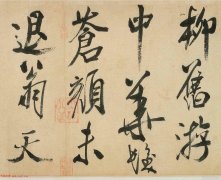 柳舊游
中華髮
蒼顏未
退翁天